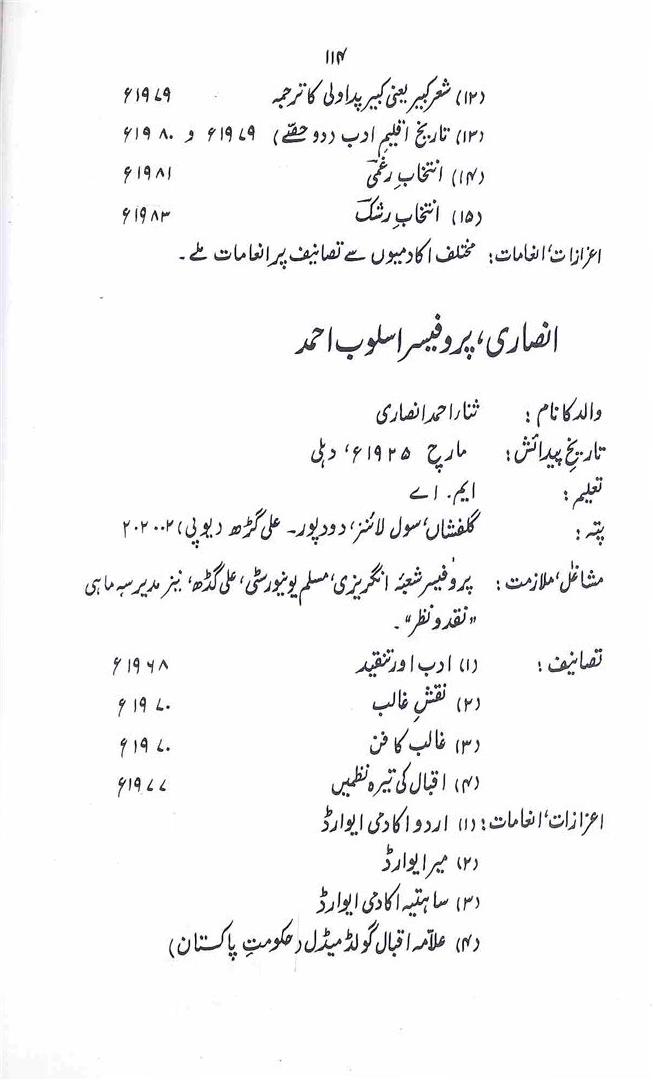 ۱۱۴
(۱۲) شعر کبیر یعنی کبیر پداولی کا ترجمہ ۱۹۷۹ء
(۱۳) تاریخ اقلیم ادب (دو حصّے) ۱۹۷۹ء و ۱۹۸۰ء
(۱۴) انتخابِ رغمیؔ ۱۹۸۱ء
(۱۵) انتخابِ رشکؔ ۱۹۸۳ء
اعزازات، انعامات: مختلف اکادمیوں سے تصانیف پر انعامات ملے۔
انصاری، پروفیسر اسلوب احمد
والد کا نام: ثناء احمد انصاری
تاریخِ پیدائش: مارچ ۱۹۲۵ء، دہلی
تعلیم: ایم. اے
پتہ: گلفشاں، سول لائنز، دودپور۔ علی گڑھ (یوپی) ۲۰۲۰۰۲
مشاغل، ملازمت: پروفیسر شعبۂ انگریزی، مسلم یونیورسٹی، علی گڈھ، نیز مدیر سہ ماہی
"نقد و نظر"۔
تصانیف: (۱) ادب اور تنقید ۱۹۶۸ء
(۲) نقشِ غالب ۱۹۷۰ء
(۳) غالب کا فن ۱۹۷۰ء
(۴) اقبال کی تیرہ نظمیں ۱۹۷۷ء
اعزازات، انعامات: (۱) اردو اکادمی ایوارڈ
(۲) میر ایوارڈ
(۳) ساہتیہ اکادمی ایوارڈ
(۴) علّامہ اقبال گولڈ میڈل (حکومتِ پاکستان)